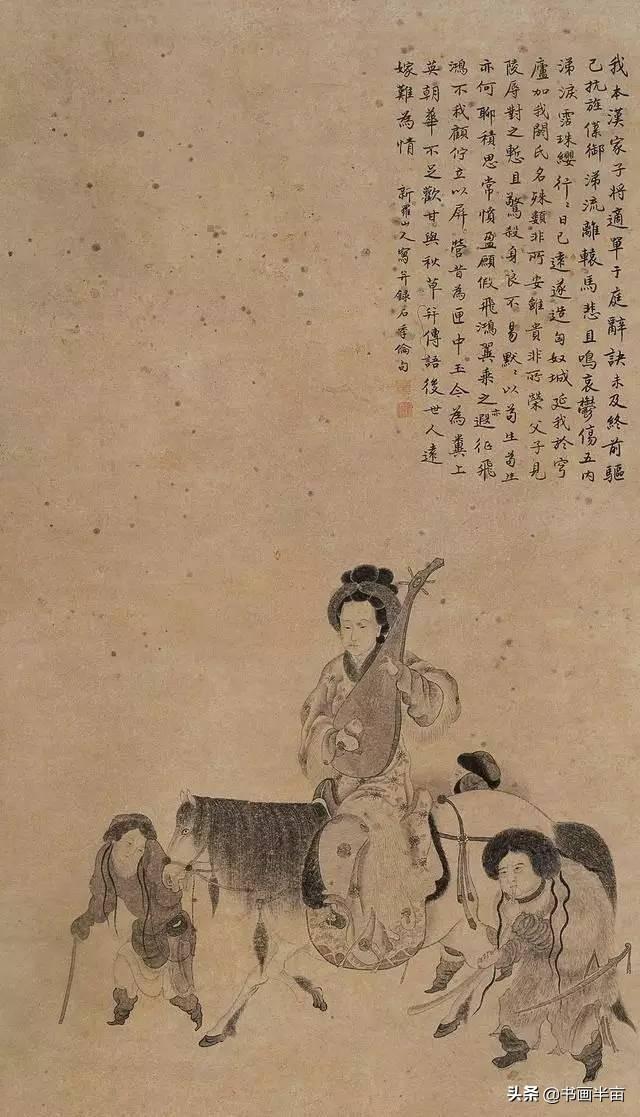 我本漢家子將適單于庭辭訣未及終前驅
已抗旌僕御涕流離轅馬悲且鳴哀鬱傷五内
涕淚霑珠纓行〻日已遠遂造匈奴城延我於穹
廬加我閼氏名殊類非所安雖貴非所榮父子見
陵辱對之慙且驚殺身良不易默〻以苟生苟生
亦何聊積思常憤盈願假飛鴻翼乘之遐征飛
鴻不我顧佇立以屏營昔為匣中玉今為糞上
英朝華不足歡甘與秋草并傳語後世人遠
嫁難為情 新羅山人寫并錄石季倫句
头条 @书画半亩